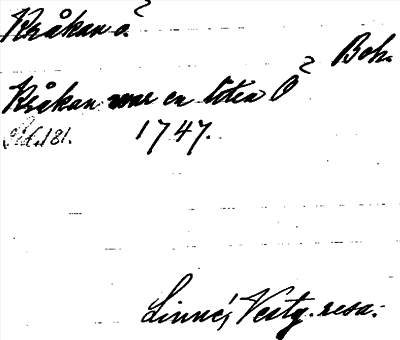 Kråkan ö.
Boh.
Kråkan war en liten Ö
Sid. 181. 1747.
Linné, Vestg. resa.